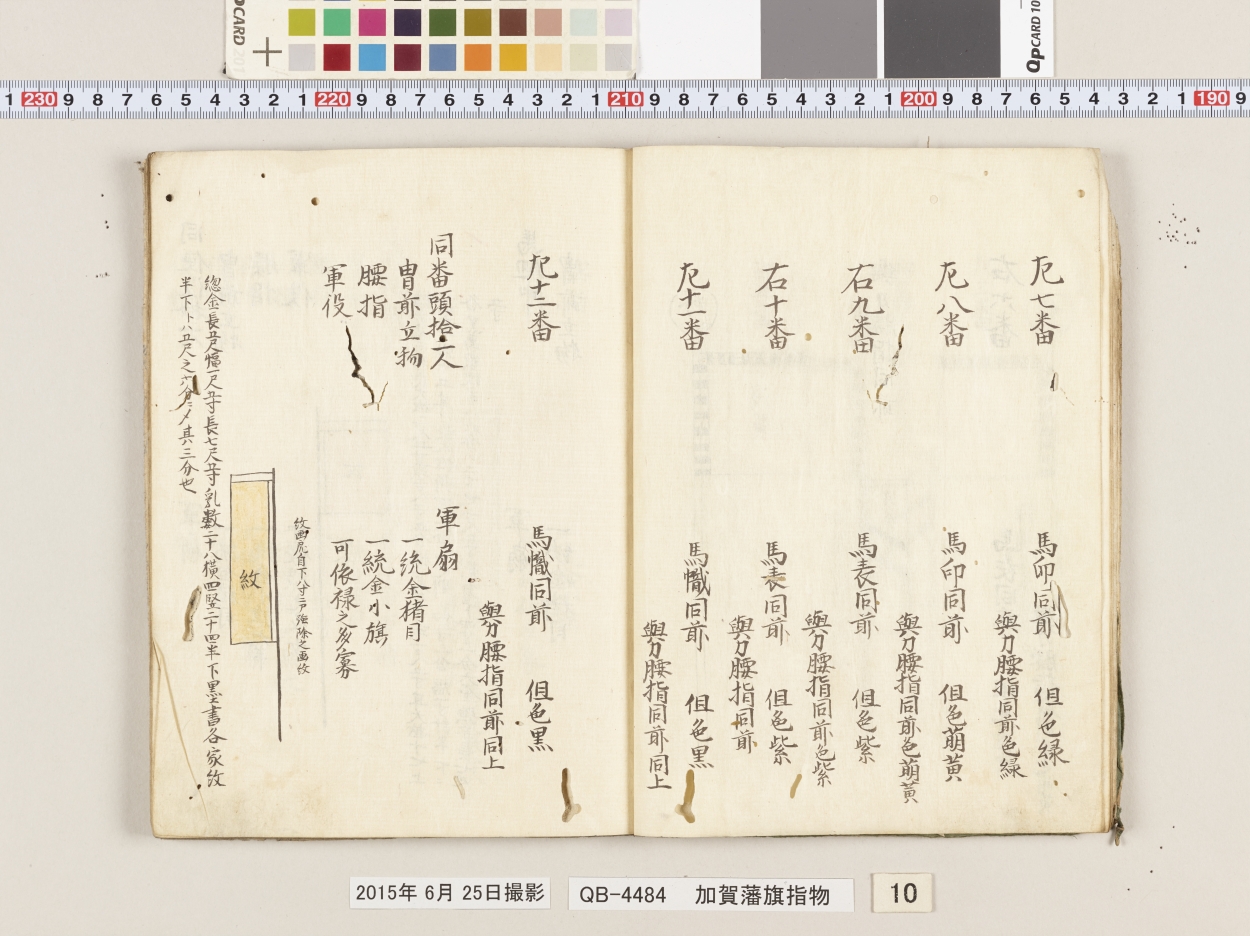 左七番　馬印同前　但色緑
與力腰指同前色緑
左八番　馬印同前　但色萠黄
與力腰指同前色萠黄
右九番　馬表同前　但色紫
與力腰指同前色紫
右十番　馬表同前　但色紫
與力腰指同前
左十一番　馬幟同前　但色黒
與力腰指同前同上
左十二番　馬幟同前　但色黒
與力腰指同前同上
同番頭拾二人　軍扇
冑前立物　一統金猪目
腰指　一統金小旗
軍役　可依禄之多寡
紋画尻自下八寸二戸強除之画
紋
惣金長五尺幅一尺五寸長七尺五寸乳數二十八横四竪二十四半下墨書各家紋
半下トハ五尺之六分二〆其三分也
2015年 6月 25日撮影
QB-4484　加賀藩旗指物
10
QPCARD
QPCARD 10
1 230 9 8 7 6 5 4 3 2 1 220 9 8 7 6 5 4 3 2 1 210 9 8 7 6 5 4 3 2 1 200 9 8 7 6 5 4 3 2 1 190 9